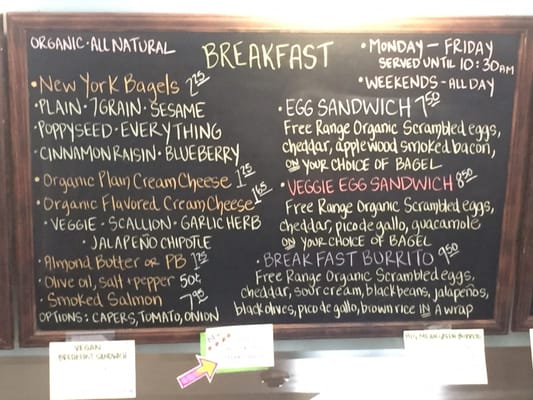 ORGANIC · ALL NATURAL
BREAKFAST
• MONDAY – FRIDAY
SERVED UNTIL 10:30AM
• WEEKENDS – ALL DAY
• NEW YORK BAGELS 2.25
• PLAIN · 7 GRAIN · SESAME
POPPYSEED · EVERYTHING
• CINNAMON RAISIN · BLUEBERRY
• ORGANIC PLAIN CREAM CHEESE 1.25
• ORGANIC FLAVORED CREAM CHEESE 1.65
• VEGGIE · SCALLION · GARLIC HERB
• JALAPEÑO CHIPOTLE
• ALMOND BUTTER OR PB 1.25
• OLIVE OIL, SALT + PEPPER 50¢
• SMOKED SALMON 7.95
OPTIONS: CAPERS, TOMATO, ONION
• EGG SANDWICH 7.50
FREE RANGE ORGANIC SCRAMBLED EGGS,
CHEDDAR, APPLEWOOD SMOKED BACON,
ON YOUR CHOICE OF BAGEL
• VEGGIE EGG SANDWICH 8.50
FREE RANGE ORGANIC SCRAMBLED EGGS,
CHEDDAR, PICO DE GALLO, GUACAMOLE
ON YOUR CHOICE OF BAGEL
• BREAKFAST BURRITO 9.50
FREE RANGE ORGANIC SCRAMBLED EGGS,
CHEDDAR, SOUR CREAM, BLACK BEANS, JALAPEÑOS,
BLACK OLIVES, PICO DE GALLO, BROWN RICE IN A WRAP
VEGAN
BREAKFAST SANDWICH